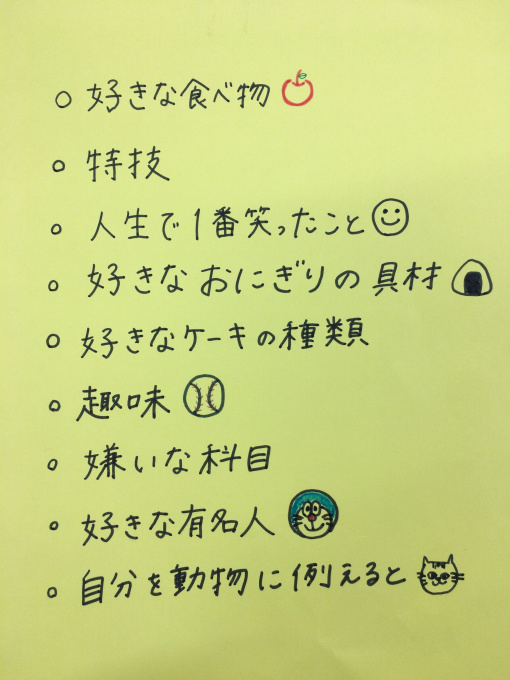 ○ 好きな食べ物
○ 特技
○ 人生で1番笑ったこと
○ 好きなおにぎりの具材
○ 好きなケーキの種類
○ 趣味
○ 嫌いな科目
○ 好きな有名人
○ 自分を動物に例えると